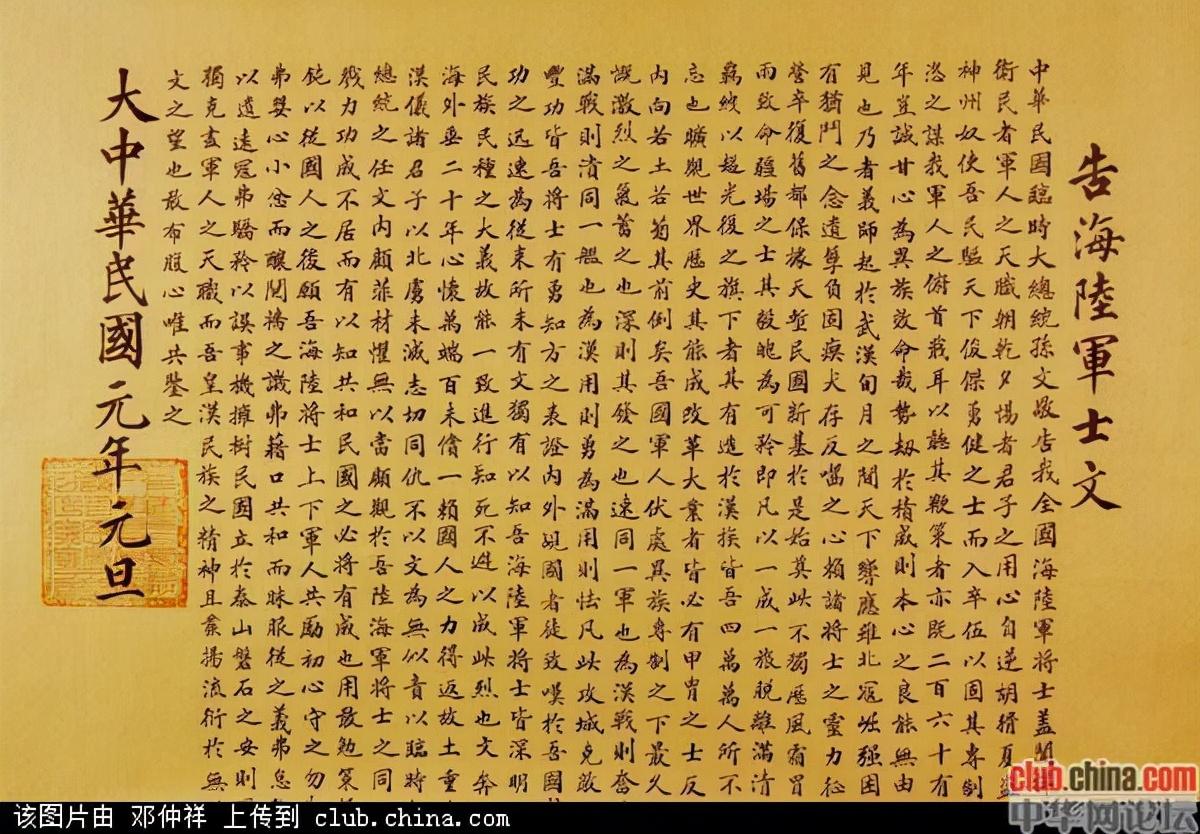 告海陸軍士文
中華民國臨時大總統孫文敬告我全國海陸軍將士蓋聞
衛民者軍人之天職朝乾夕惕者君子之用心自逆胡猾夏盜
神州奴使吾民驅天下俊傑勇健之士而入卒伍以固其專制
恣之謀我軍人之俯首戢耳以聽其鞭策者亦既二百六十有
年豈誠甘心為異族效命哉勢劫於積威則本心之良能無由
見也乃者義師起於武漢旬月之間天下響應雖北寇崛强困
有猶鬥之念遺孽負固瘈犬存反噬之心賴諸將士之靈力征
營卒復舊都保據天塹民國新基於是始奠此不獨歷風霜冒
雨致命疆場之士其毅魄為可矜即凡以一成一旅脫離滿清
羈絏以趨光復之旗下者其有造於漢族皆吾四萬萬人所不
忘也曠觀世界歷史其能成改革大業者皆必有甲冑之士反
內向若土若葡其前倒矣吾國軍人伏處異族專制之下最久
慨激烈之氣蓄之也深則其發之也速同一軍也為漢戰則奮
滿戰則潰同一艦也為漢用則勇為滿用則怯凡此攻城克敵
豐功皆吾將士有勇知方之表證內外覘國者徒致嘆於吾國
功之迅速為從來所未有文獨有以知吾海陸軍將士皆深明
民族民種之大義故能一致進行知死不避以成此烈也文奔
海外垂二十年心懷萬端百未償一賴國人之力得返故土重
漢儀諸君子以北虜未滅志切同仇不以文為無似責以臨時
總統之任文內顧菲材懼無以當顧觀於吾陸海軍將士之同
戮力功成不居而有以知共和民國之必將有成也用敢勉策
鈍以從國人之後願吾海陸將士上下軍人共勵初心守之勿
弗嬰心小忿而釀鬩牆之譏弗藉口共和而昧服從之義弗怠
以遺遠寇弗驕矜以誤事機擁樹民國立於泰山磐石之安則
獨克盡軍人之天職而吾皇漢民族之精神且發揚流衍於無
文之望也敢布腹心唯共鑒之
大中華民國元年元旦
club.china.com
中华网论坛
该图片由 邓仲祥 上传到 club.china.com